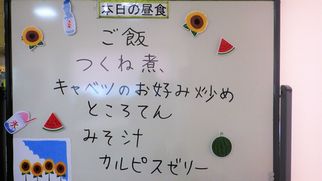 本日の昼食
ご飯
つくね煮、
キャベツのお好み炒め
ところてん
みそ汁
カルピスゼリー